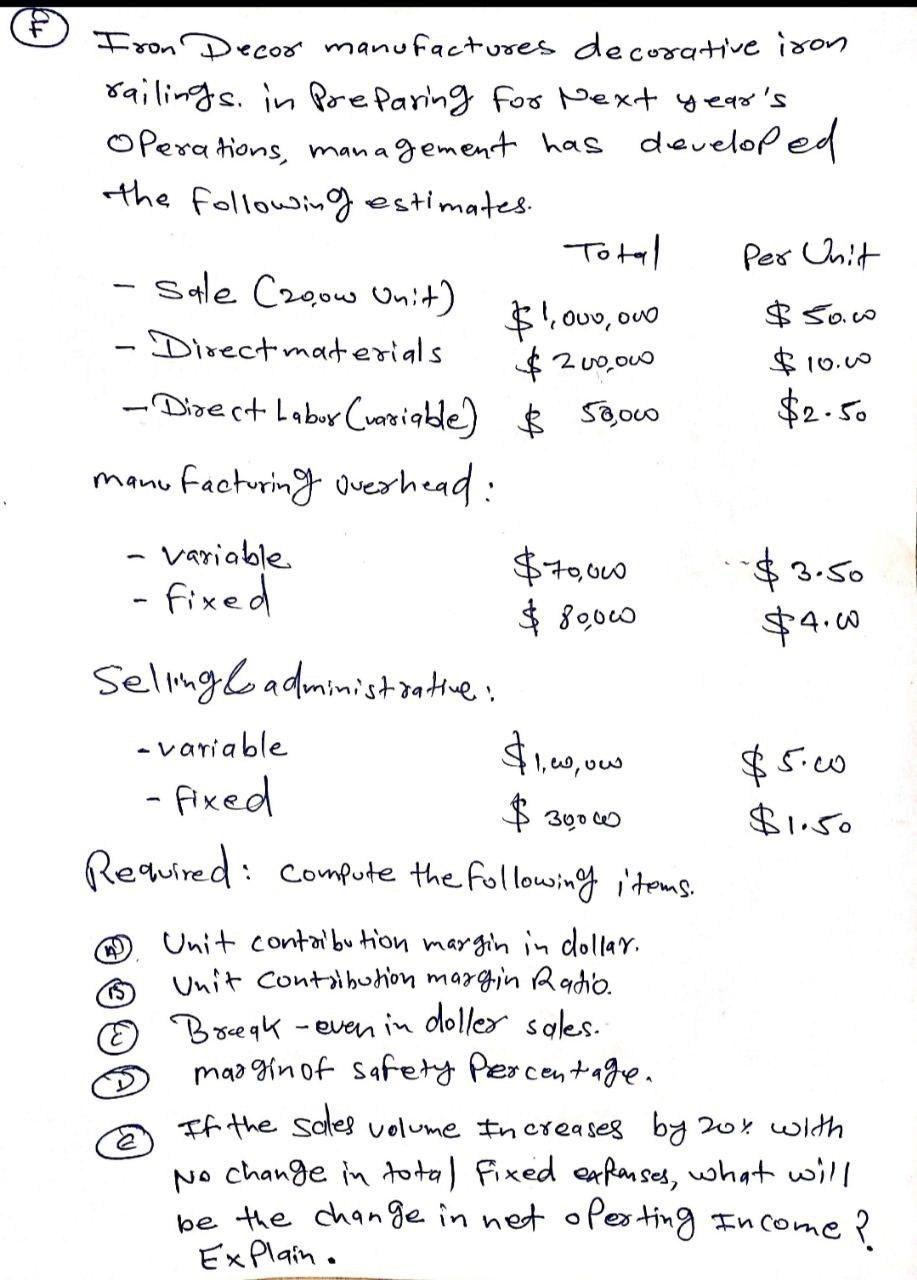 F
Iron Decor manufactures decorative iron
railings. in Preparing for Next year's
Operations, management has developed
the following estimates.
Total Per Unit
- Sale (20,000 Unit) $1,000,000 $50.00
- Direct materials $200,000 $10.00
- Direct Labor (variable) $ 50,000 $2.50
manufacturing overhead:
- variable $70,000 $3.50
- fixed $80,000 $4.00
Selling & administrative:
- variable $1,00,000 $5.00
- fixed $30,000 $1.50
Required: compute the following items.
A Unit contribution margin in dollar.
B Unit Contribution margin Ratio.
C Break-even in doller sales.
D margin of safety Percentage.
E If the sales volume Increases by 20% with
No change in total fixed expenses, what will
be the change in net operting Income?
Explain.